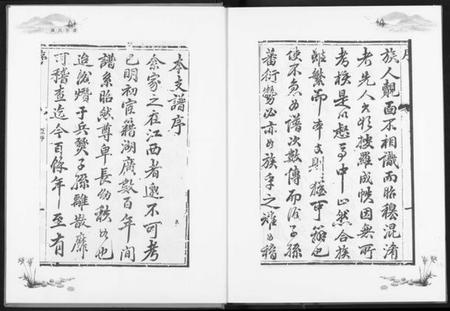 本支譜序
余家之在江西者遠不可考
已明初宦籍湖廣數百年間
譜系昭然尊卑長幼秩如也
迨後燬于兵燹子孫離散靡
可稽查迄今百餘年至有
族人覿面不相識而昭穆混淆
考先人欲搜羅成帙因無所
考核是以中止然合族
雖繁而本支則猶可辦也
使不急為譜次數傳而後子孫
蕃衍勢必亦如族之難稽